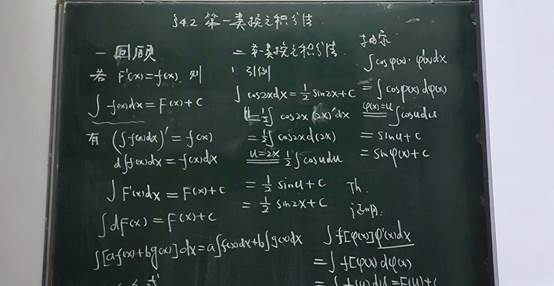 §4.2 第一类换元积分法
一 回顾
若 F'(x)=f(x), 则
∫f(x)dx=F(x)+C
有 (∫f(x)dx)'=f(x)
d∫f(x)dx=f(x)dx
∫F'(x)dx=F(x)+C
∫dF(x)=F(x)+C
∫[af(x)+bg(x)]dx=a∫f(x)dx+b∫g(x)dx
二 第一类换元积分法
1 引例
∫cos2xdx=1/2 sin2x+C
1/2∫cos2x(2x)'dx
=1/2∫cos2xd(2x)
u=2x 1/2∫cosudu
=1/2 sinu+C
=1/2 sin2x+C
∫cosφ(x)·φ'(x)dx
=∫cosφ(x)dφ(x)
φ(x)=u ∫cosudu
=sinu+C
=sinφ(x)+C
Th.
证明.
∫f[φ(x)]φ'(x)dx
=∫f[φ(x)]dφ(x)
=∫f(u)du=F(u)+C